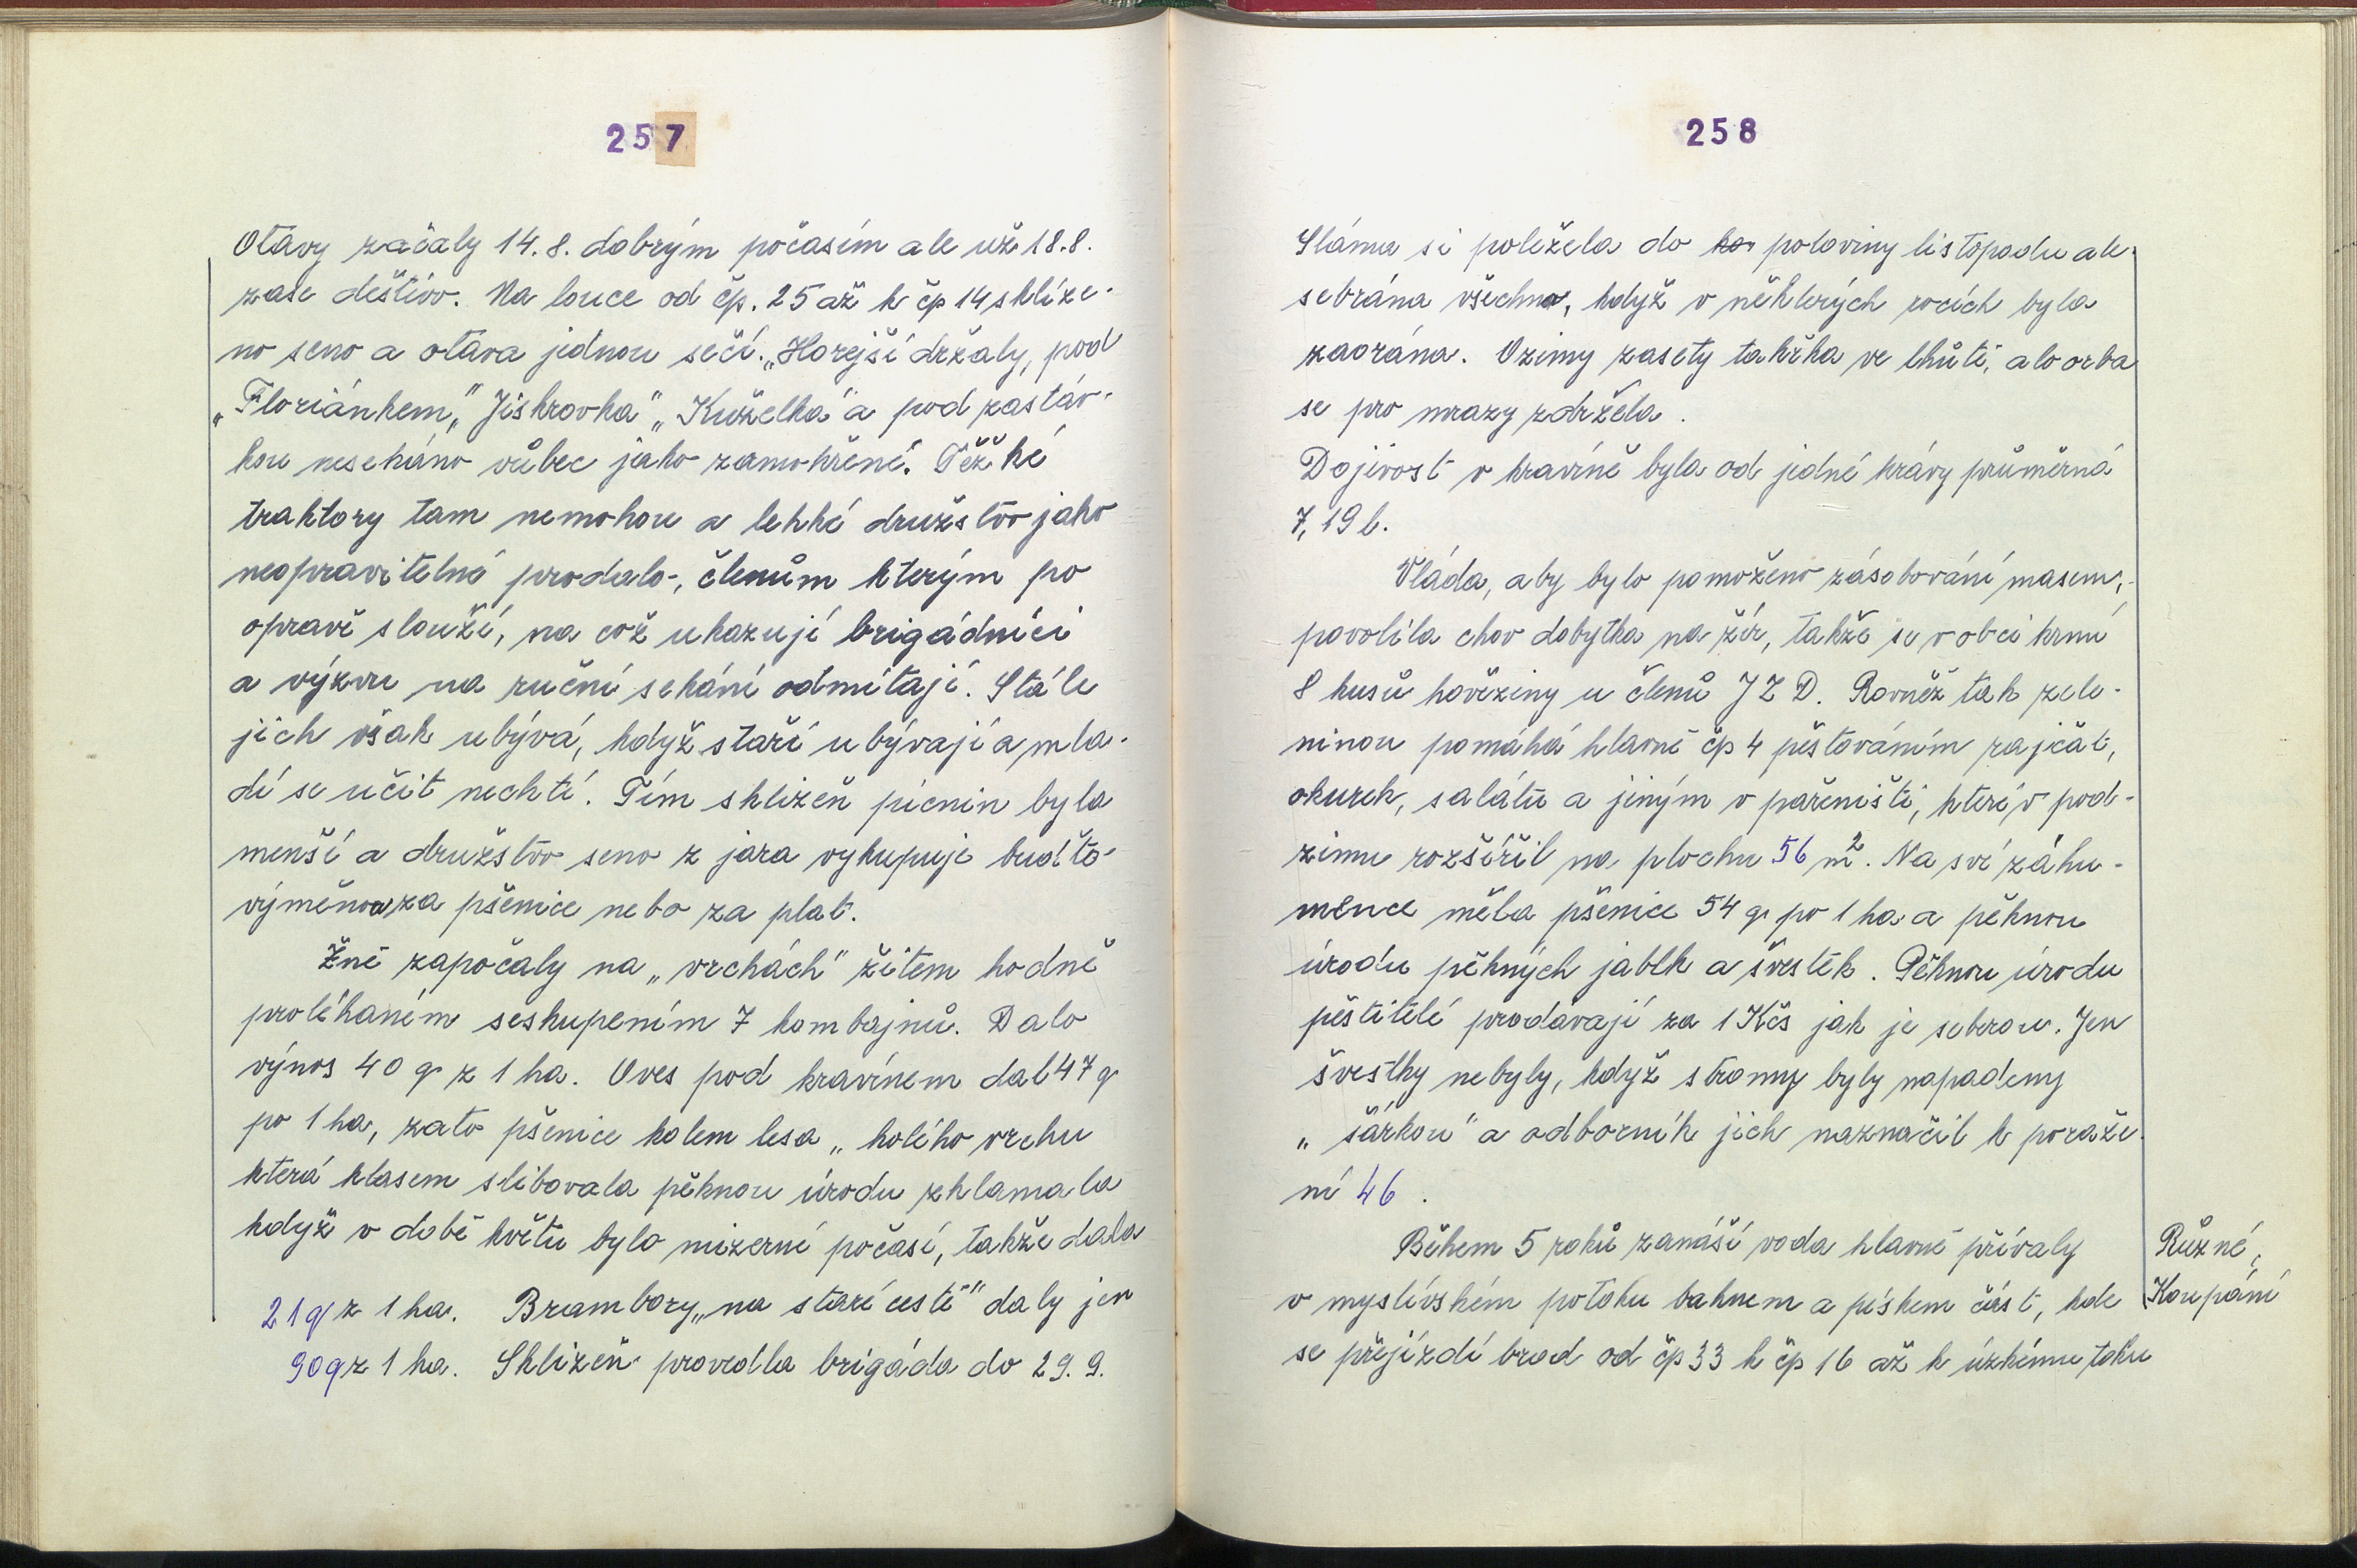 257
Otavy začaly 14.8. dobrým počasím ale už 18.8.
zase deštivo. Na louce od čp. 25 až k čp 14 sklíze-
no seno a otava jednou sečí. „Horejší držaly, pod
„Floriánkem," „Jiskrovka" „Kuželka" a pod zastáv-
kou nesekáno vůbec jako zamokřené. Těžké
traktory tam nemohou a lehké družstvo jako
neopravitelné prodalo, členům kterým po
opravě slouží, na což ukazují brigádníci
a výzvu na ruční sekání odmítají. Stále
jich však ubývá, když staří ubývají a mla-
dí se učit nechtí. Tím sklizeň pícnin byla
menší a družstvo seno z jara vykupuje buďto
výměnou za pšenice nebo za plat.
Žně započaly na „vrchách" žitem hodně
proléhaném seskupením 7 kombajnů. Dalo
výnos 40 q z 1 ha. Oves pod kravínem dal 47 q
po 1 ha, zato pšenice kolem lesa „holého vrchu
která klasem slibovala pěknou úrodu zklamala
když v době květu bylo mizerné počasí, takže dala
21 q z 1 ha. Brambory „na staré cestě" daly jen
90 q z 1 ha. Sklizeň provedla brigáda do 29. 9.
258
Sláma si poležela do poloviny listopadu ale
sebrána všechna, když v některých rocích byla
zaorána. Ozimy zasety takřka ve lhůtě, ale orba
se pro mrazy zdržela.
Dojivost v kravíně byla od jedné krávy průměrná
7,19 l.
Vláda, aby bylo pomoženo zásobování masem,
povolila chov dobytka na žír, takže se v obci krmí
8 kusů hověziny u členů JZD. Rovněž tak zele-
ninou pomáhá hlavně čp 4 pěstováním rajčat,
okurek, salátu a jiným v pařeništi, které v pod-
zimu rozšířil na plochu 56 m². Na své záhu-
mence měla pšenice 54 q po 1 ha a pěknou
úrodu pěkných jablk a švestek. Pěknou úrodu
pěstitelé prodávají za 1 Kčs jak je seberou. Jen
švestky nebyly, když stromy byly napadeny
„šárkou" a odborník jich naznačil k poraže-
ní 46.
Během 5 roků zanáší voda hlavně přívaly
v myslívském potoku bahnem a pískem část, kde
se přejízdí brod od čp 33 k čp 16 až k úzkému toku
Různé,
Koupání